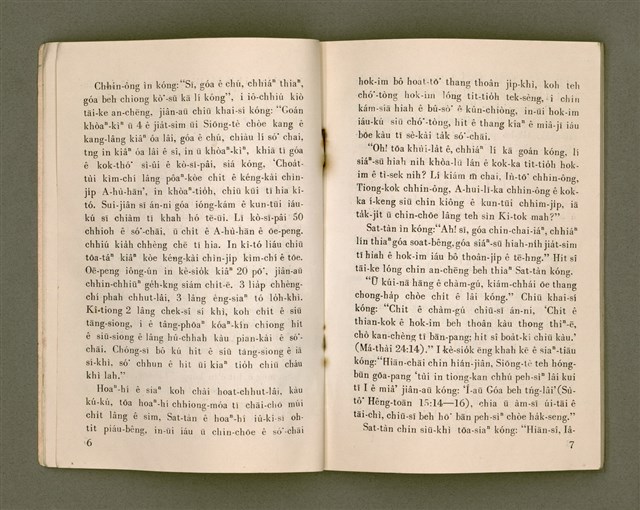 Chhin-ông ìn kóng: "Sí, góa ê chú, chhiáⁿ thiaⁿ,
góa beh chiong kò͘-sū kā lí kóng", i iō-chhiú kiò
tāi-ke an-chēng, jiân-aū chiū khai-sí kóng: "Goán
khòaⁿ-kìⁿ ū 4 ê jiát-sim úi Siōng-tè chòe kang ê
kang-lâng kiâⁿ óa lâi, góa ê chú, chiàu lí só͘ chai,
tng in kiâⁿ óa lâi ê sî, in ū khòaⁿ-kìⁿ, khiā tī góa
ê kok-thó͘ sì-ûi ê kò-sī-pâi, siá kóng, 'Choa̍t-
tùi kìm-chí lâng pôaⁿ-kòe chit ê kéng-kài chìn-
ji̍p A-hú-hān', in khòaⁿ-tio̍h, chiū kūi tī hia kî-
tó. Sui-jiân sī án-ni góa ióng-kám ê kun-tūi iáu-
kú sī chiàm tī khah hó tē-ūi. Lī kò-sī-pâi 50
chhioh ê só͘-chāi, ū chit ê A-hú-hān ê oe-peng.
chhiú kia̍h chhèng chē tī hia. In kî-tó liáu chiū
tōa-táⁿ kiâⁿ kòe kéng-kài chìn-ji̍p kìm-chí ê tōe.
Oē-peng iông-ún in kè-sio̍k kiâⁿ 20 pō͘, jiân-aū
chhin-chhiūⁿ ge̍h-kng siám chi̍t-ē. 3 lia̍p chhèng-
chí phah chhut-lâi, 3 lâng êng-siaⁿ tó lo̍h-khì.
Kî-tiong 2 lâng chek-sî sí khì, koh chi̍t ê siū
tāng-siong, i ê tâng-phōaⁿ kóaⁿ-kín chiong hit
ê siū-siong ê lâng hû-chhah kàu pian-kài ê só͘-
chāi. Chóng-sī bô kú hit ê siū tāng-siong ê iā
sí-khì, só͘ chhun ê hit ūi kiaⁿ tio̍h chiū cháu
khì lah."
Hoaⁿ-hí ê siaⁿ koh chài hoat-chhut-lâi, kàu
kú-kú, tōa hoaⁿ-hí chhiong-móa tī chāi-chō múi
chi̍t lâng ê sim, Sat-tàn ê hoaⁿ-hí iû-kî-sī oh-
tit piáu-bêng, in-ūi iáu ū chin-chōe ê só͘-chāi
6
hok-im bô hoat-tō͘ thang thoân ji̍p-khì, koh teh
chó͘-tòng hok-im lóng tit-tio̍h tek-sèng, i chin
kám-siā hiah ê bû-sò͘ ê kún-chiòng, in-ūi hok-im
iáu-kú siū chó͘-tòng, hit ê thang kiáⁿ ê miâ-jī iáu
bōe kàu tī sè-kài ta̍k só͘-chāi.
"Oh! tōa khùi-la̍t ê, chhiáⁿ lí kā goán kóng, lí
siáⁿ-sū hiah nih khòa-lū lán ê kok-ka tit-tio̍h hok-
im ê tì-sek nih? Lí kiám m̄ chai, Ìn-tō͘ chhin-ông,
Tiong-kok chhin-ông, A-hui-lī-ka chhin-ông ê kok-
ka í-keng siū chin kiông ê kun-tūi chhim-ji̍p, iā
ta̍k-ji̍t ū chin-chōe lâng teh sìn Ki-tok mah?"
Sat-tàn ìn kóng: "Ah! sī, góa chin-chai-iáⁿ, chhiáⁿ
lín thiaⁿ góa soat-bêng, góa siáⁿ-sū hiah-nih jia̍t-sim
tī hiah ê hok-im iáu bô thoân-ji̍p ê tē-hng." Hit sî
tāi-ke lóng chin an-chēng beh thiaⁿ Sat-tàn kóng.
"Ū kúi-nā hāng ê chàm-gú, kiám-chhái óe thang
chong-ha̍p chòe chi̍t ê lâi kóng." Chiū khai-sí
kóng: "Chi̍t ê chàm-gú chiū-sī án-ni, 'Chit ê
thian-kok ê hok-im beh thoân kàu thong thiⁿ-ē,
chò kan-chèng tī bān-pang; hit sî boa̍t-kî chiū kàu.'
(Má-thài 24:14)." I kè-sio̍k ēng khah kē ê siaⁿ-tiāu
kóng: "Hiān-chāi chin hiân-jiân, Siōng-tè teh hóng-
būn gōa-pang 'tùi in tiong-kan chhú peh-sìⁿ lâi kui
tī I ê miâ' jiân-aū kóng: 'Í-aū Góa beh tńg-lâi' (Sù-
tô͘ Hēng-toān 15:14—16), chia ū àm-sī úi-tāi ê
tāi-chì, chiū-sī beh hō͘ bān peh-sìⁿ chòe ha̍k-seng."
Sat-tàn chin siū-khì tōa-siaⁿ kóng: "Hiān-sî, Iâ-
7